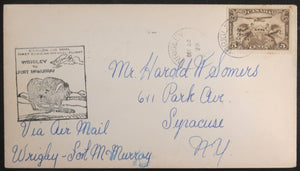 CANADIAN AIR MAIL
FIRST OFFICIAL FLIGHT
WRIGLEY
TO
FORT McMURRAY
WRIGLEY
CANADA
5
Mr. Harold W. Somers
611 Park Ave.
Syracuse
N.Y.
Via Air Mail
Wrigley - Fort McMurray